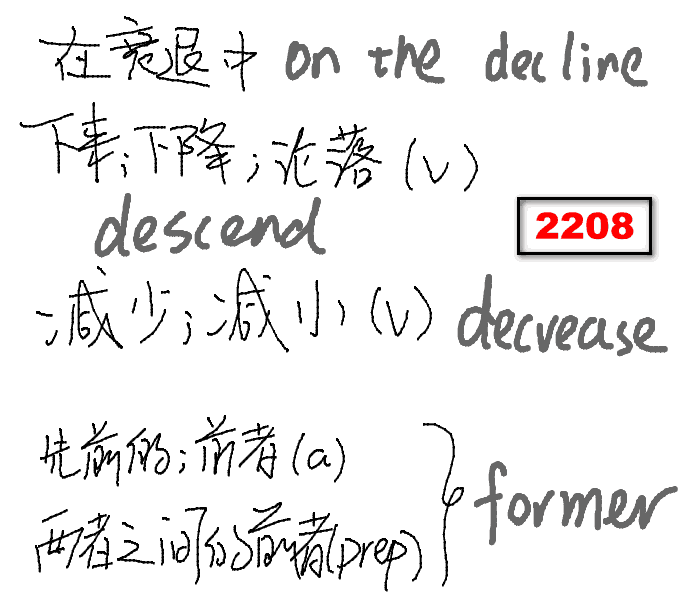 在衰退中 on the decline
下来;下降;沦落(v)
descend
2208
减少;减小(v) decrease
先前的;前者(a)
former
两者之间的前者(prep)